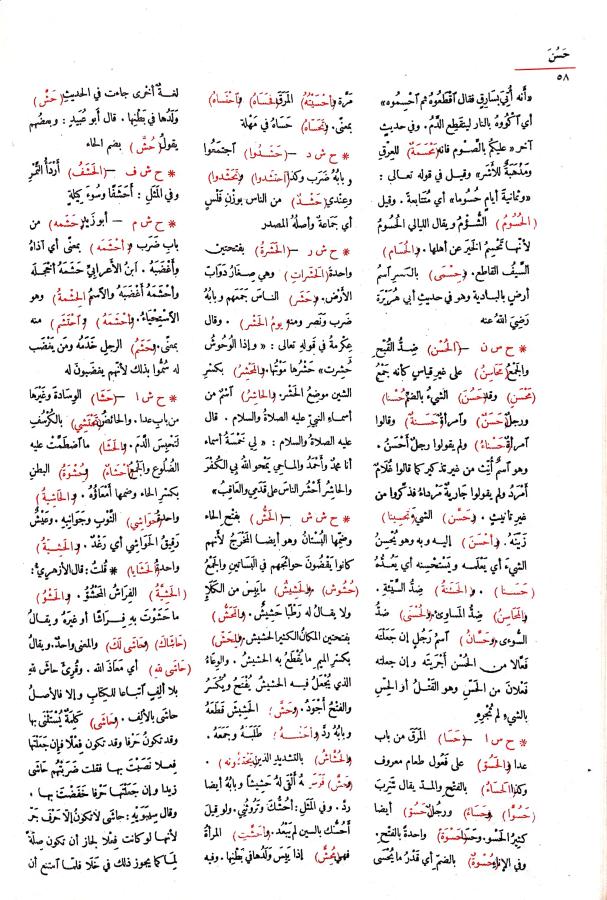 حَسُنَ
٥٨
«أنه أُتِيَ بسارِقٍ فقال اقْطَعُوهُ ثم احْسِمُوه»
أي اكْوُوه بالنار لينقطِع الدَّمُ. وفي حديث
آخر «عليكم بالصَّوم فإنه (مَحْسَمَةٌ) للعِرْقِ
ومَذْهَبَةٌ للأَشَرِ» وقيل في قوله تعالى:
«وثمانيةَ أيامٍ حُسوما» أي مُتتابعة. وقيل
(الحُسُومُ) الشُّؤْمُ ويقال الليالي الحُسُومُ
لأنها تَحْسِمُ الخيرَ عن أهلها. (والحُسَام)
السَّيْفُ القاطع. و(حِسْمَى) بالكسر اسم
أرضٍ بالبادية وهو في حديث أبي هُرَيْرَة
رَضِيَ اللهُ عنه
* ح س ن - (الحُسْن) ضِدُّ القُبْح
والجمْعُ (مَحَاسِنُ) على غير قياسٍ كأنه جَمْعُ
(مَحْسَنٍ) وقد (حَسُنَ) الشيءُ بالضم (حُسْنا)
ورجلٌ (حَسَنٌ) وامرأةٌ (حَسَنَةٌ) وقالوا
امرأةٌ (حَسْنَاءُ) ولم يقولوا رجلٌ أَحْسَنُ.
وهو اسمٌ أُنِّثَ من غير تذكير كما قالوا غُلَامٌ
أمْرَدُ ولم يقولوا جاريةٌ مَرْدَاءُ فذكّروا من
غير تأنيث. و(حَسَّن) الشيءَ (تحسينا)
زَيَّنَهُ. و(أَحْسَنَ) إليه وبه وهو يُحْسِنُ
الشيءَ أي يَعْلَمُه ويَسْتَحْسِنُه أي يَعُدُّهُ
(حَسَنا). و(الحَسَنةُ) ضِدُّ السَّيِّئة.
و(المَحَاسِنُ) ضِدُّ المساوئ. و(الحُسْنَى) ضدُّ
السُّوءَى. و(حَسَّانُ) اسم رَجُلٍ إن جَعَلْتَه
فَعَّالا من الحُسْن أَجْرَيتَه وإن جعلتَه
فَعْلانَ من الحَسِّ وهو القَتْلُ أو الحِسِّ
بالشيء لم تُجْرِهِ
* ح س ا - (حَسَا) المَرَقَ من باب
عدا و(الحَسُوّ) على فَعُول طعام معروف
وكذا (الحَسَاءُ) بالفتح والمدّ يقال شَرِبَ
(حَسُوًّا) و(حَسَاءً) ورجُلٌ (حَسُوٌّ) أيضا
كثيرُ الحَسْو. وحَسَا (حَسْوَةً) واحدةً بالفتح.
وفي الإناء (حُسْوةٌ) بالضم أي قَدْرُ ما يُحْسَى
مَرَّة و(أَحْسَيْتُهُ) المَرَقَ (فَحَسَاهُ) و(احْتَسَاهُ)
بمعنًى. و(تَحَسَّاهُ) حَسَاهُ في مَهْلَة
* ح ش د - (حَشَدُوا) اجتمعُوا
وبابُهُ ضَرَب وكذا (احتَشَدوا) و(تَحَشَّدوا)
وعِنْدي (حَشْدٌ) من الناس بوزْنِ فَلْسٍ
أي جَمَاعَةٌ وأصلُهُ المصدر
* ح ش ر - (الحَشَرَةُ) بفتحتين
واحدةُ (الحَشَراتِ) وهي صِغَارُ دَوَابّ
الأرض. و(حَشَرَ) الناسَ جَمَعَهم وبابُهُ
ضَرب ونَصر ومنه (يومُ الحَشْرِ). وقال
عِكْرِمةُ في قوله تعالى: «وإذا الوُحُوشُ
حُشِرت» حَشْرُها مَوْتُها. و(المَحْشِرُ) بكسر
الشين موضِعُ الحَشْر. و(الحاشِرُ) اسمٌ من
أسماءِ النبيّ عليه الصلاة والسلام. قال
عليه الصلاة والسلام: «لي خَمْسةُ أسماء
أنا محمدٌ وأَحْمَدُ والماحِي يَمْحُو اللهُ بي الكُفْرَ
والحاشِرُ أَحْشُرُ الناسَ على قَدَمِي والعاقِبُ»
* ح ش ش - (الحَُشُّ) بفتح الحاء
وضمِّها البُسْتانُ وهو أيضا المَخْرَجُ لأنهم
كانوا يَقْضُون حوائجهم في البساتين والجمْعُ
(حُشُوش). و(الحَشِيشُ) ما يَبِس من الكَلَإِ
ولا يقال له رَطْبًا حَشِيشٌ. و(المَحَشُّ)
بفتحتين المكانُ الكثيرُ الحشيش. و(المِحَشُّ)
بكسر الميم ما يُقْطَع به الحشيشُ. والوِعَاءُ
الذي يُجْعَلُ فيه الحشيشُ يُفْتَحُ ويُكْسَرُ
والفتحُ أَجْوَدُ. و(حَشَّ) الحَشِيشَ قَطَعَهُ
وبابُه رَدَّ و(احْتَشَّهُ) طَلَبَهُ وجَمَعَهُ.
و(الحُشَّاشُ) بالتشديد الذين (يَحْتَشُّونه).
و(حَشَّ) فَرَسَهُ أَلْقَى لَهُ حَشِيشاً وبابُهُ أيضا
ردّ. وفي المَثَلِ: أَحُشُّكَ وتَرُوثُني. ولو قيل
أَحُسُّكَ بالسين لم يَبْعُدْ. و(أَحَشَّتِ) المرأةُ
فهي (مُحِشٌّ) إذا يَبِسَ وَلَدُها في بَطْنها. وفيه
لُغةٌ أخرى جاءت في الحديث (حَشَّ)
وَلَدُها في بَطْنها. قال أبو عُبَيد: وبعضُهم
يقول (حُشَّ) بضم الحاء
* ح ش ف - (الحَشَفُ) أَرْدَأُ التَّمْر
وفي المَثَلِ: أَحَشَفًا وسُوءَ كِيلَةٍ
* ح ش م - أبو زيد (حَشَمه) من
باب ضَرَب و(أحْشَمَه) بمعنًى أي آذاهُ
وأَغْضَبَهُ. ابنُ الأعرابيّ حَشَمَهُ أخجَلَهُ
وأَحْشَمَهُ أَغْضَبَه والاسمُ (الحِشْمةُ) وهو
الاستِحْيَاءُ. و(أحْشَمَهُ) و(احْتَشَم) منه
بمعنًى. و(حَشَمُ) الرجلِ خَدَمُه ومن يَغْضَب
له سُمُّوا بذلك لأنهم يغضبون له
* ح ش ا - (حَشَا) الوسادةَ وغيرَها
من باب عدا. والحائضُ (تَحْتَشِي) بالكُرْسُفِ
لتحبِس الدَّمَ. و(الحَشَا) ما اضْطَمَّتْ عليه
الضُّلوعُ والجمْعُ (أحْشَاءٌ). و(حُِشْوَةُ) البطن
بكسر الحاء وضمها أَمْعَاؤُه. و(الحَاشِيَةُ)
واحدةُ (حَواشِي) الثَّوْبِ وجَوَانِبِه. وعَيْشٌ
رقيقُ الحَوَاشِي أي رَغْدٌ. و(الحَشِيَّةُ)
واحدةُ (الحشَايا) * قلتُ: قال الأزهريّ:
(الحَشِيَّةُ) الفِراشُ المَحْشُوُّ. و(الحَشْوُ)
ما حَشَوْتَ به فِراشًا أو غيرَهُ ويقال
(حَاشَاكَ) و(حَاشَى لَكَ) والمعنى واحدٌ. ويقال
(حَاشَى للهِ) أي مَعَاذَ الله. وقُرِئَ حاشَ لِلّهِ
بلا ألِفٍ اتّباعا للكِتاب وإلا فالأصلُ
حاشَى بالألف. و(حَاشَى) كلمةٌ يُسْتَثْنَى بها
وقد تكونُ حَرْفا وقد تكون فِعْلا فإن جَعَلتَها
فعلا نَصَبْتَ بها فقلت ضَرَبتُهم حاشَى
زيدا وإن جَعَلْتَها حَرْفا خَفَضْتَ بها.
وقال سِيبَوَيْه: حاشَى لا تكونُ إلا حَرفَ جَرّ
لأنها لو كانت فِعلا لجاز أن تكون صِلَةً
لِمَا كما يجوز ذلك في خَلَا فلمّا امتنع أن